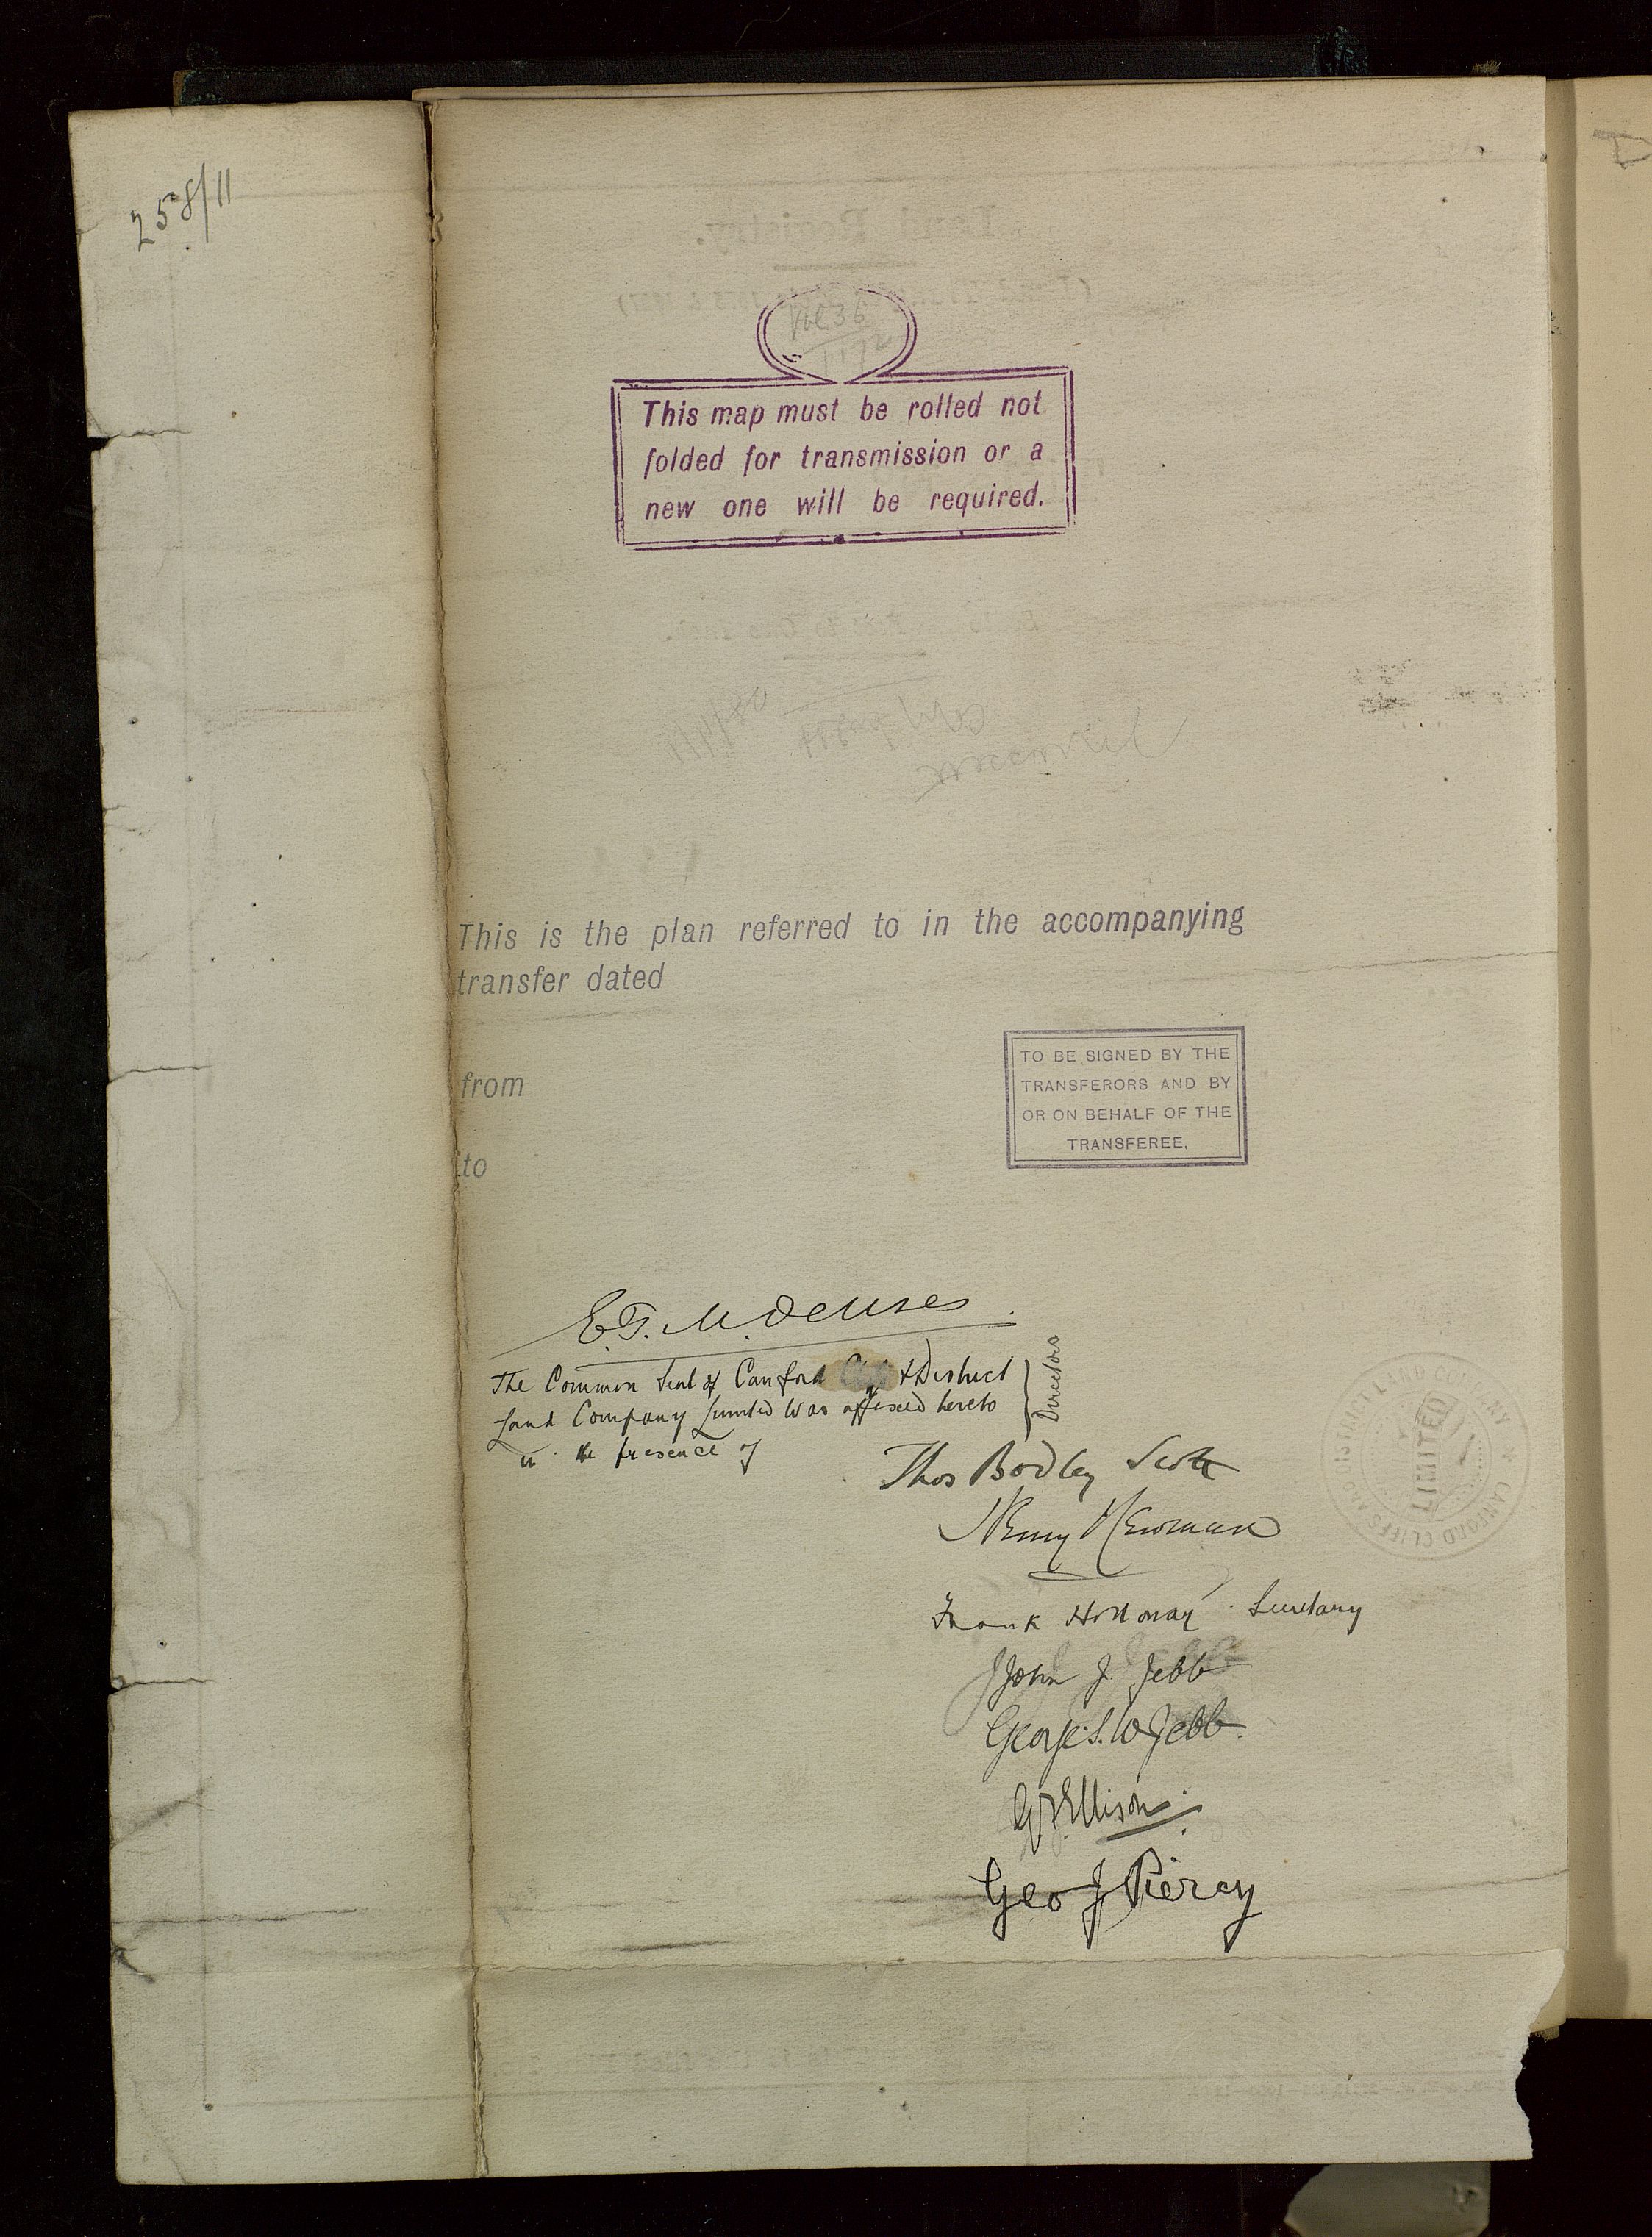 258/11
Vol 36
This map must be rolled not
folded for transmission or a
new one will be required.
This is the plan referred to in the accompanying
transfer dated
from
to
TO BE SIGNED BY THE
TRANSFERORS AND BY
OR ON BEHALF OF THE
TRANSFEREE.
The Common Seal of Canford Cliffs & District
Land Company Limited was affixed hereto
in the presence of
Directors
Thos Bodley Scott
Henry Newman
Frank Holloway Secretary
John J. Jebb
George S. W Jebb.
Ellison
Geo J Piercy
CANFORD CLIFFS AND DISTRICT LAND COMPANY
LIMITED